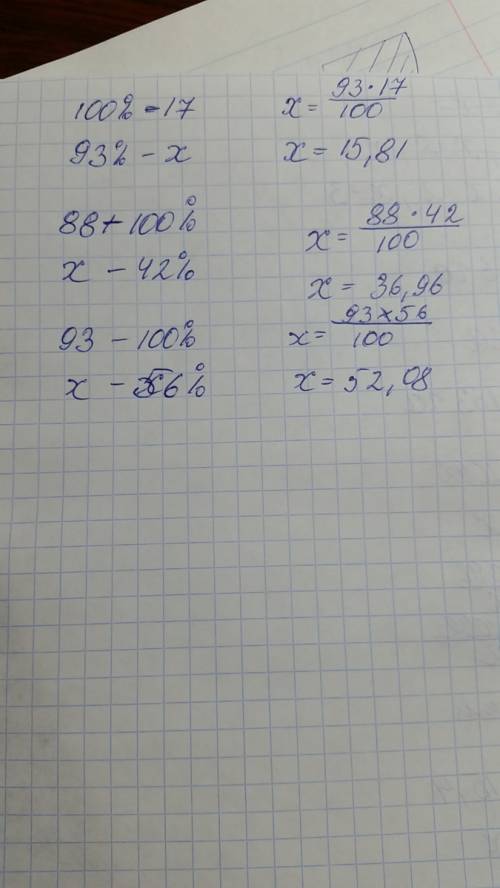 100% - 17
93% - x
x = 93 · 17 / 100
x = 15,81
88 + 100%
x - 42%
x = 88 · 42 / 100
x = 36,96
93 - 100%
x - 56%
x = 93 × 56 / 100
x = 52,08